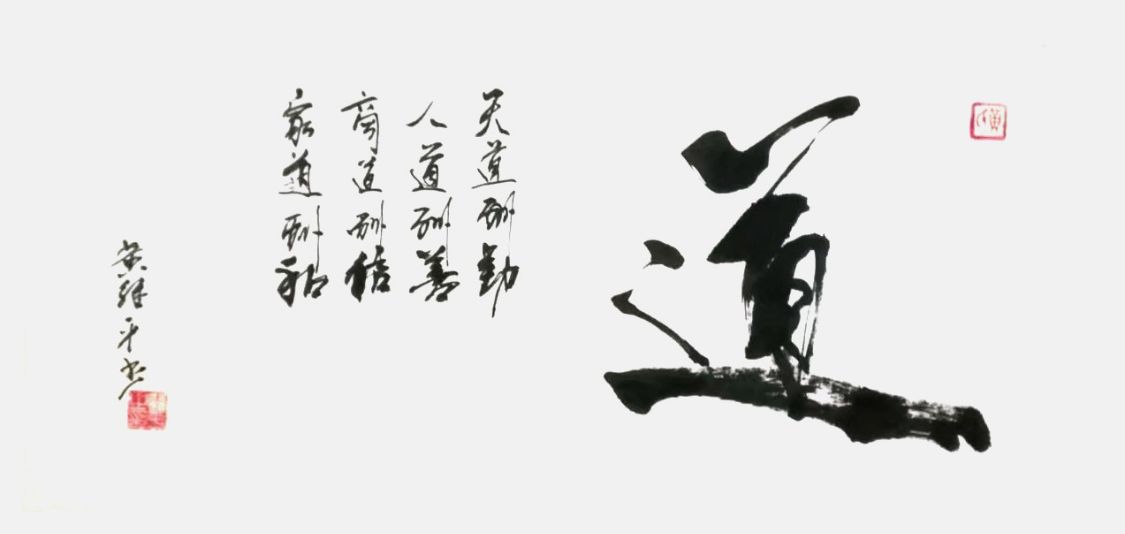 道
天道酬勤
人道酬善
商道酬信
家道酬和